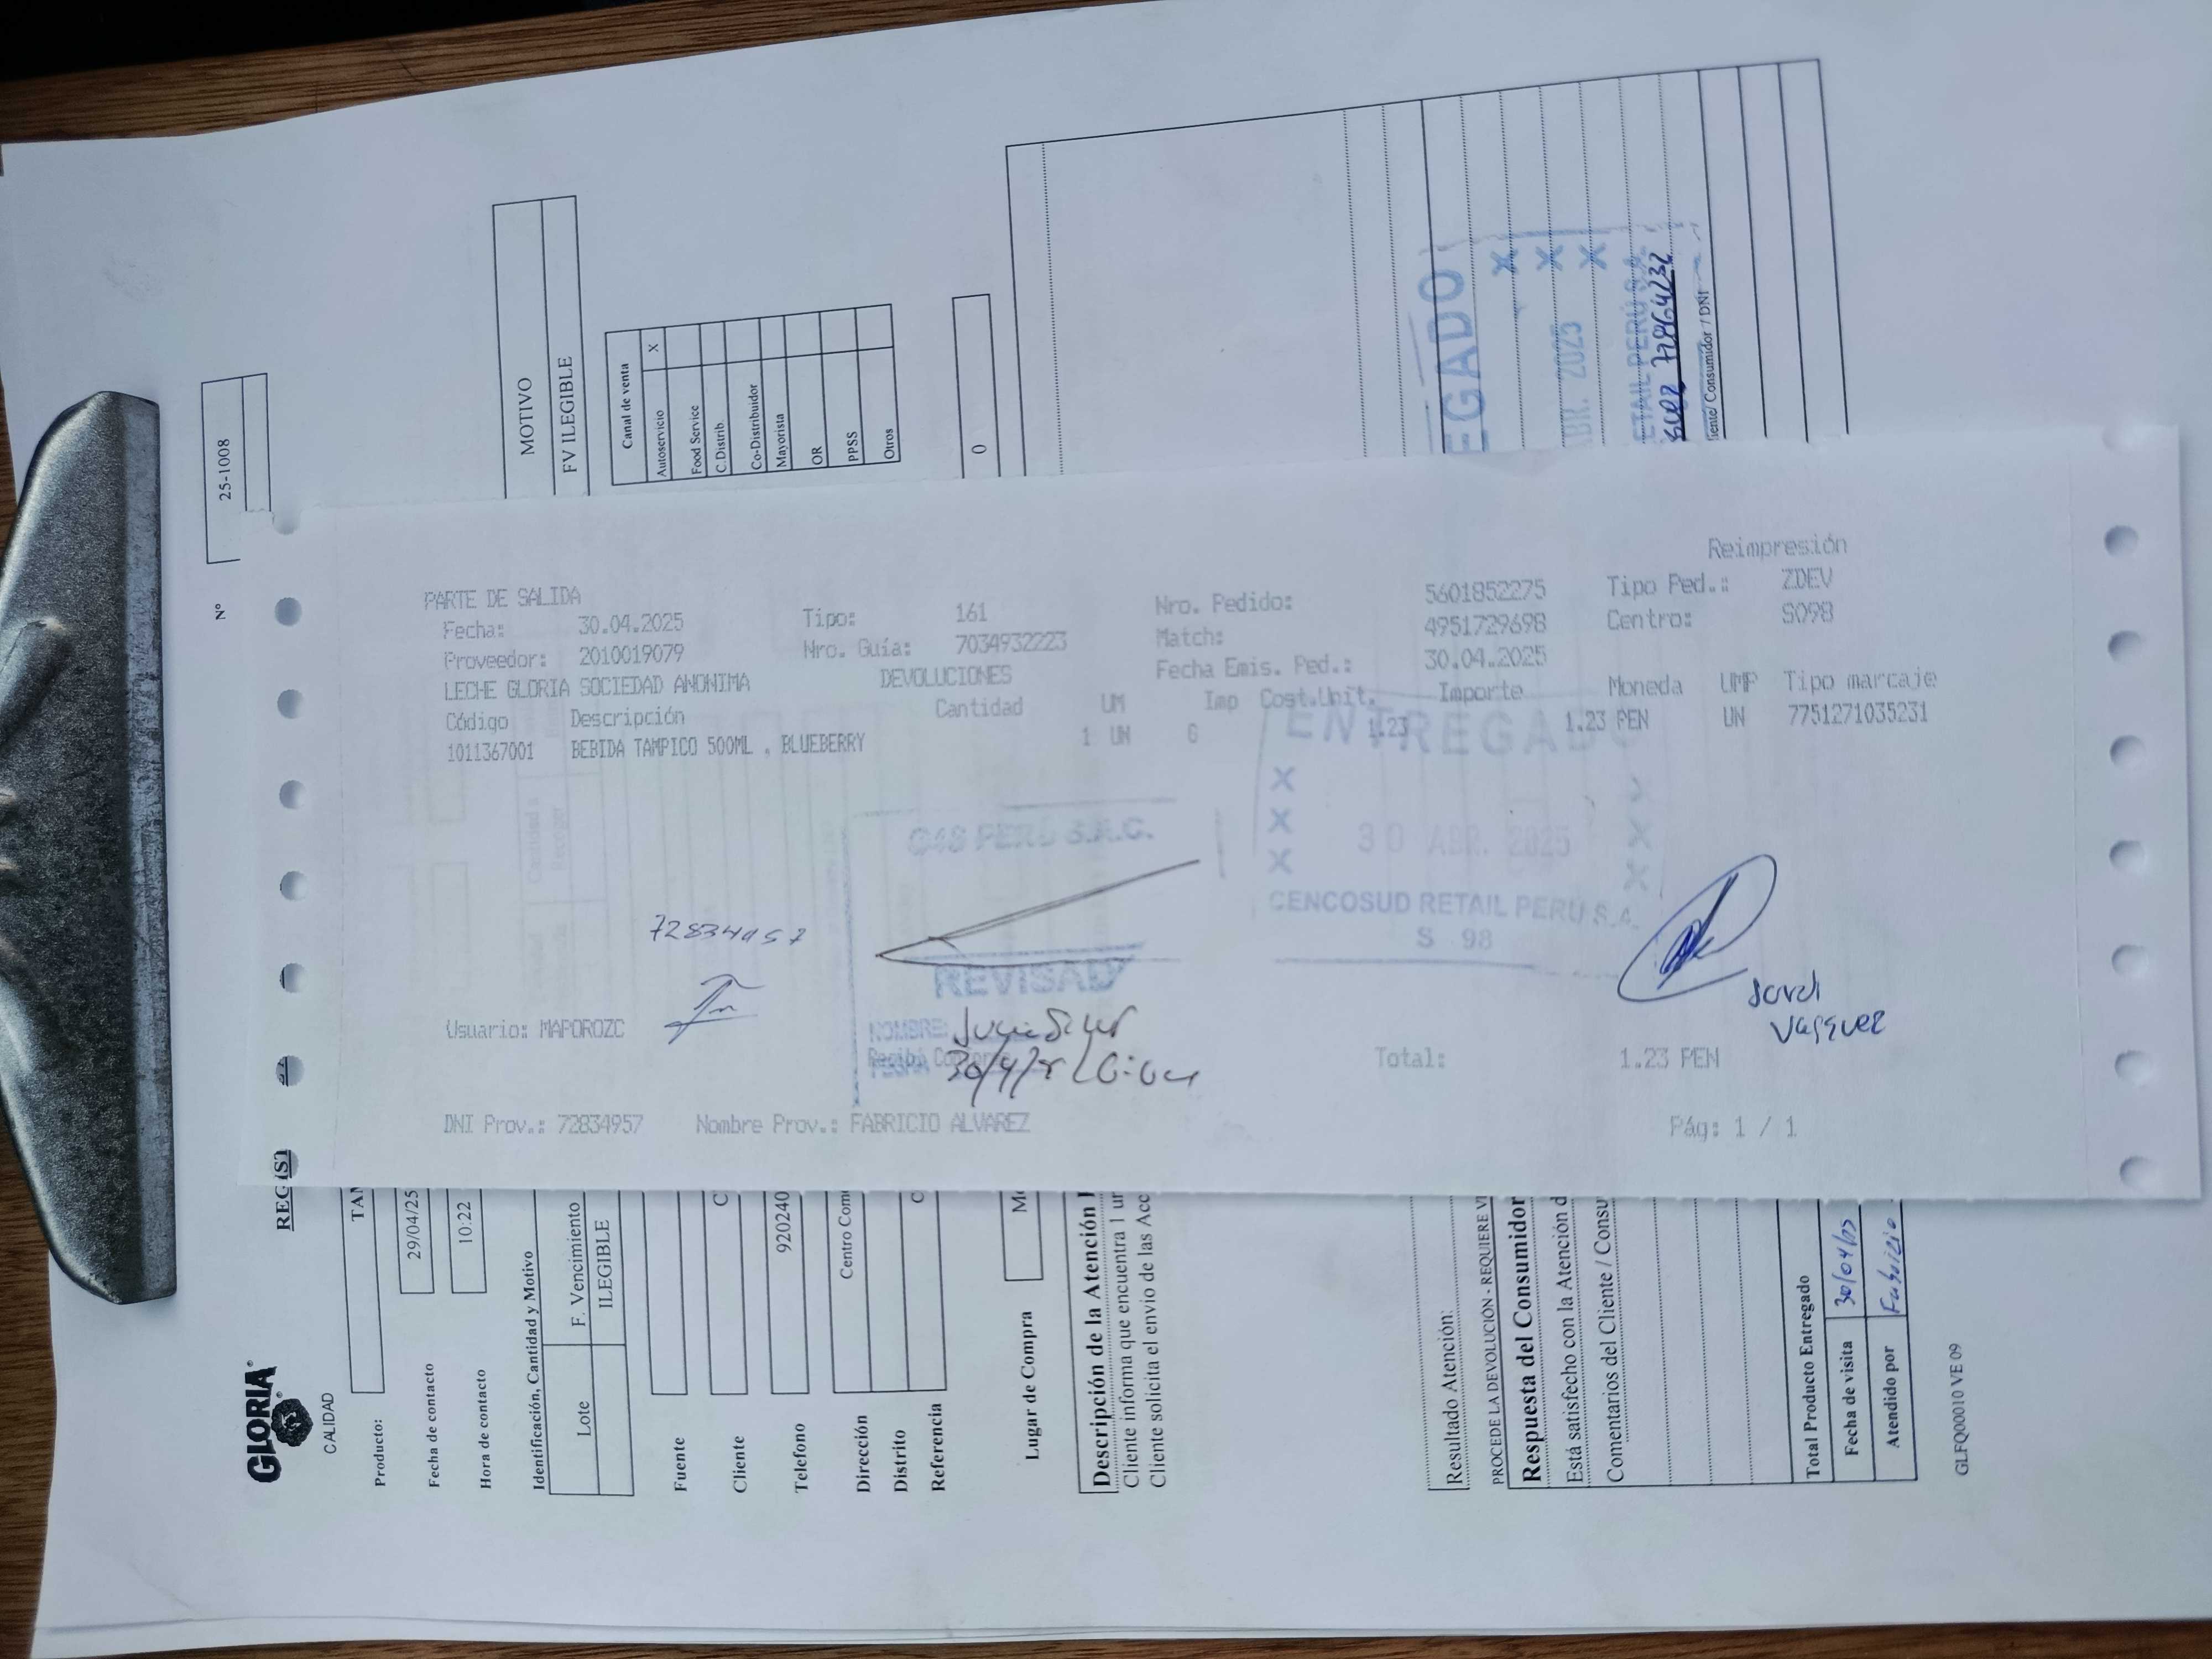 Reimpresión
PARTE DE SALIDA
Fecha: 30.04.2025 Tipo: 161 Nro. Pedido: 5601852275 Tipo Ped.: ZDEV
Proveedor: 2010019079 Nro. Guía: 7034932223 Match: 4951729698 Centro: S098
LECHE GLORIA SOCIEDAD ANONIMA DEVOLUCIONES Fecha Emis. Ped.: 30.04.2025
Código Descripción Cantidad UM Imp Cost.Unit. Importe Moneda UMP Tipo marcaje
1011367001 BEBIDA TAMPICO 500ML , BLUEBERRY 1 UN G 1.23 1.23 PEN UN 7751271035231
ENTREGADO
X X X
30 ABR. 2025
X X X
CENCOSUD RETAIL PERU S.A.
S 98
G4S PERU S.A.C.
REVISAD
NOMBRE:
30/4/
72834957
Jordi
Vasquez
Usuario: MAPOROZC
Total: 1.23 PEN
DNI Prov.: 72834957 Nombre Prov.: FABRICIO ALVAREZ
Pág: 1 / 1
GLORIA
CALIDAD
REGIST
Nº 25-1008
Producto: TAM
Fecha de contacto 29/04/25
Hora de contacto 10:22
Identificación, Cantidad y Motivo
Lote F. Vencimiento MOTIVO
ILEGIBLE FV ILEGIBLE
Canal de venta
Autoservicio X
Food Service
C.Distrib.
Co-Distribuidor
Mayorista
OR
PPSS
Otros
Fuente
Cliente C
Telefono 920240
Dirección Centro Com
Distrito
Referencia C
Lugar de Compra 0
Descripción de la Atención
Cliente informa que encuentra 1 un
Cliente solicita el envio de las Acc
Resultado Atención:
PROCEDE LA DEVOLUCIÓN - REQUIERE VI
Respuesta del Consumidor
Está satisfecho con la Atención d
Comentarios del Cliente / Consu
EGADO
X
ABR. 2025 X
X
ETAIL PERÚ S.A.
iente/ Consumidor / DNI
Total Producto Entregado
Fecha de visita 30/04/25
Atendido por Fabrizio
GLFQ00010 VE 09